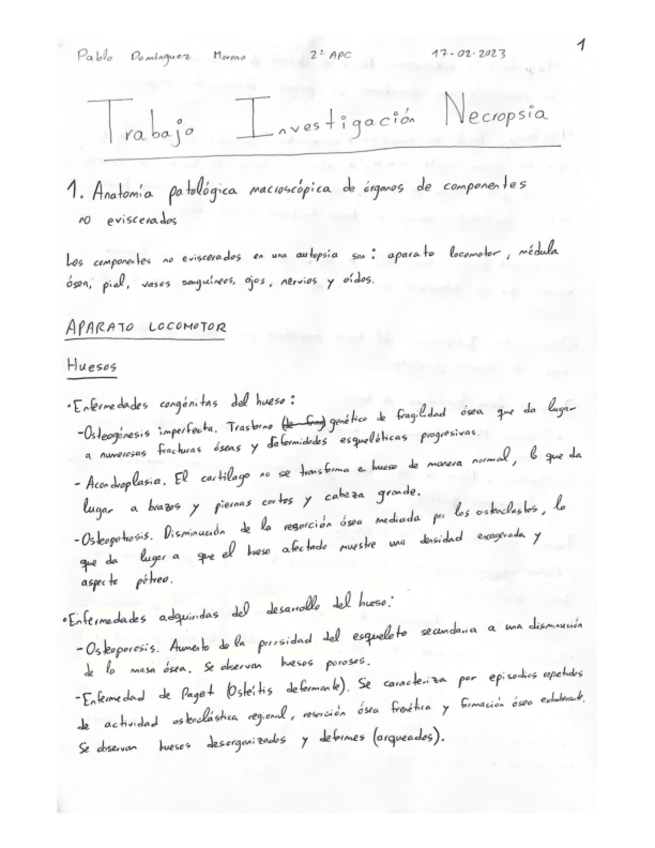 Pablo Domínguez Moreno 2º APC 17-02-2023 1
Trabajo Investigación Necropsia
1. Anatomía patológica macroscópica de órganos de componentes
no eviscerados
Los componentes no eviscerados en una autopsia son: aparato locomotor, médula
ósea, piel, vasos sanguíneos, ojos, nervios y oídos.
APARATO LOCOMOTOR
Huesos
·Enfermedades congénitas del hueso:
-Osteogénesis imperfecta. Trastorno genético de fragilidad ósea que da lugar
a numerosas fracturas óseas y deformidades esqueléticas progresivas.
- Acondroplasia. El cartílago no se transforma en hueso de manera normal, lo que da
lugar a brazos y piernas cortos y cabeza grande.
-Osteopetrosis. Disminución de la resorción ósea mediada por los osteoclastos, lo
que da lugar a que el hueso afectado muestre una densidad exagerada y
aspecto pétreo.
·Enfermedades adquiridas del desarrollo del hueso:
-Osteoporosis. Aumento de la porosidad del esqueleto secundaria a una disminución
de la masa ósea. Se observan huesos porosos.
-Enfermedad de Paget (Osteítis deformante). Se caracteriza por episodios repetidos
de actividad osteoclástica regional, resorción ósea frenética y formación ósea exuberante.
Se observan huesos desorganizados y deformes (arqueados).